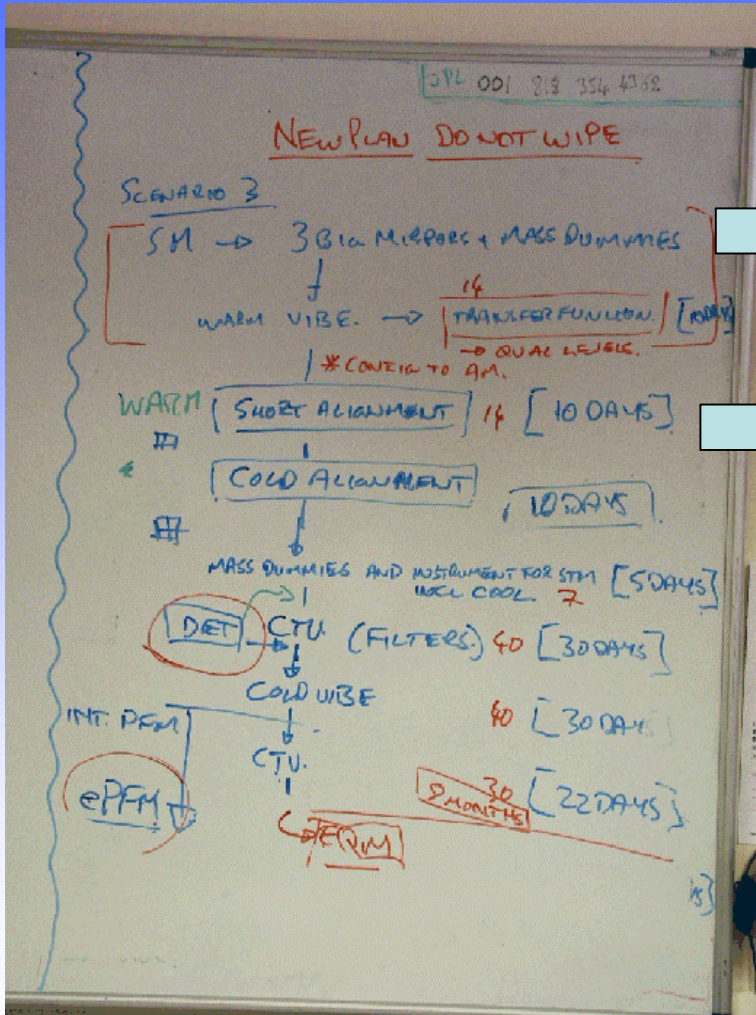 JPL 001 818 354 4362
NEW PLAN DO NOT WIPE
SCENARIO 3
SM → 3 BIG MIRRORS + MASS DUMMIES
14
WARM VIBE. → TRANSFER FUNCTION. [10 DAYS]
→ QUAL LEVELS.
* CONFIG TO AM.
WARM SHORT ALIGNMENT 14 [10 DAYS]
COLD ALIGNMENT
10 DAYS
MASS DUMMIES AND INSTRUMENT FOR STM [5 DAYS]
INCL COOL. 7
DET CTV. (FILTERS.) 40 [30 DAYS]
COLD VIBE
INT. PFM 40 [30 DAYS
CTV.
ePFM 30 [22 DAYS]
9 MONTHS
EQM